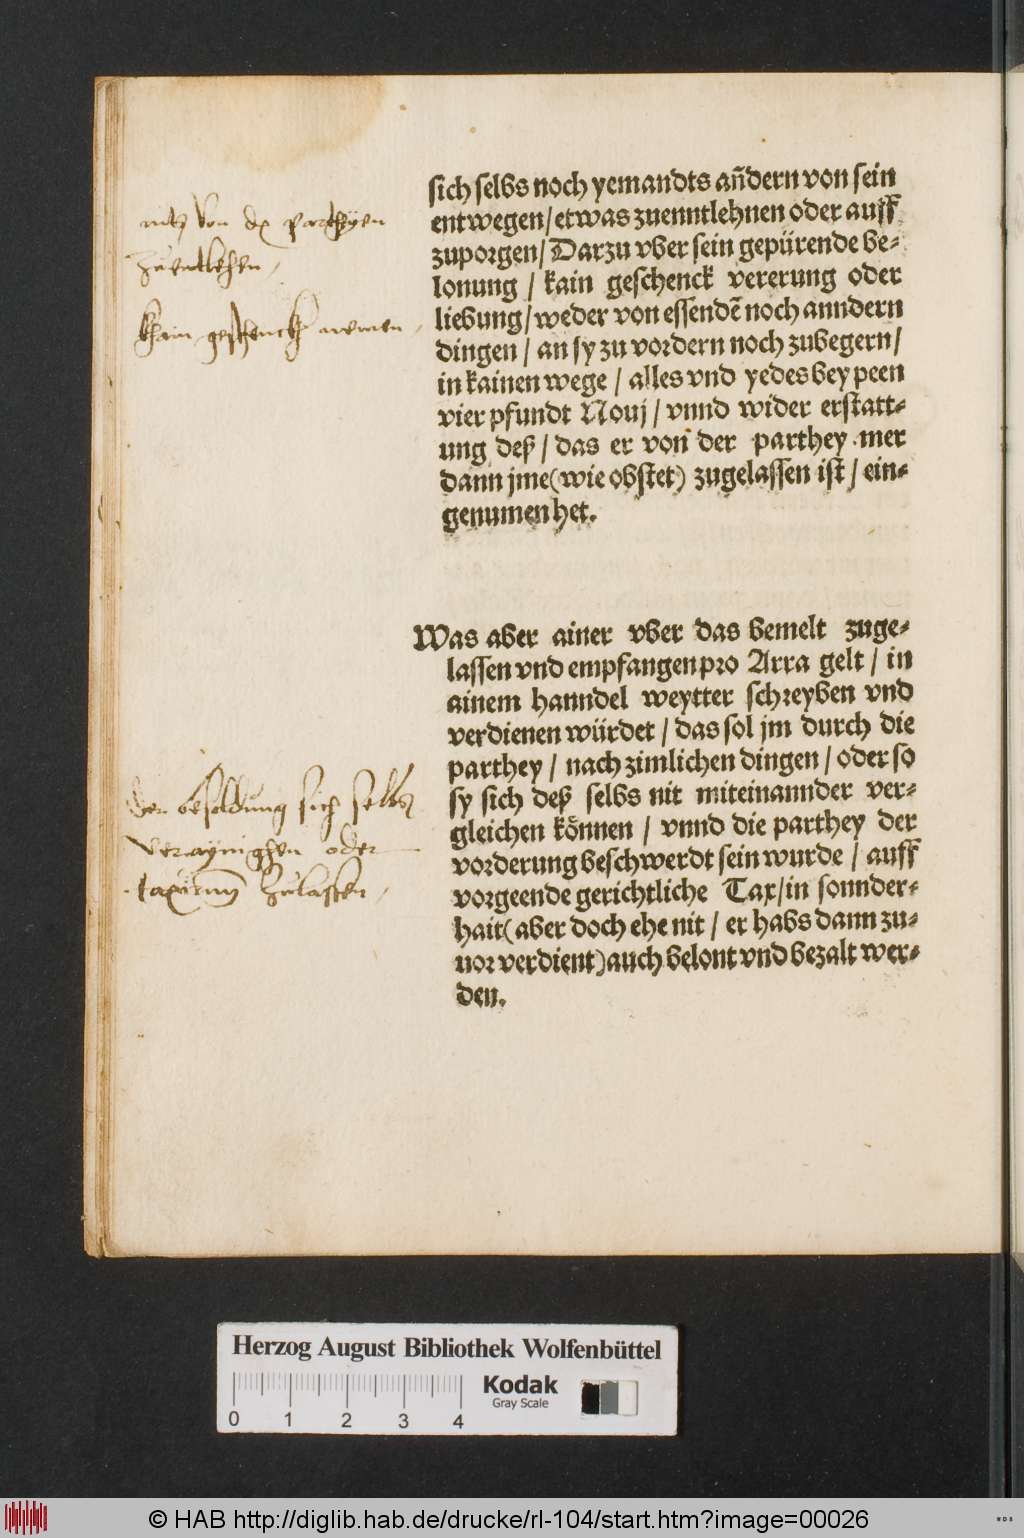 sich selbs noch yemandts an̄dern von sein
entwegen / etwas zuenntlehnen oder auff
zuporgen / Darzu vber sein gepürende be⸗
lonung / kain geschenck vererung oder
liebung / weder von essendē noch anndern
dingen / an sy zu vordern noch zubegern /
in kainen wege / alles vnd yedes bey peen
vier pfundt Nouj / vnnd wider erstatt⸗
ung deß / das er von der parthey mer
dann jme (wie obstet) zugelassen ist / ein⸗
genumen het.
nitz von parthyen
zuentlehen /
khain geschenckh nemen /
Was aber ainer vber das bemelt zuge⸗
lassen vnd empfangen pro Arra gelt / in
ainem hanndel weytter schreyben vnd
verdienen würdet / das sol jm durch die
parthey / nach zimlichen dingen / oder so
sy sich deß selbs nit miteinannder ver⸗
gleichen koͤnnen / vnnd die parthey der
vorderung beschwerdt sein wurde / auff
vorgeende gerichtliche Tax / in sonnder⸗
hait (aber doch ehe nit / er habs dann zu⸗
uor verdient) auch belont vnd bezalt wer⸗
den.
der besoldung sich selbs
veraynighen oder
zulassen /
Herzog August Bibliothek Wolfenbüttel
Kodak
Gray Scale
0 1 2 3 4
© HAB http://diglib.hab.de/drucke/rl-104/start.htm?image=00026